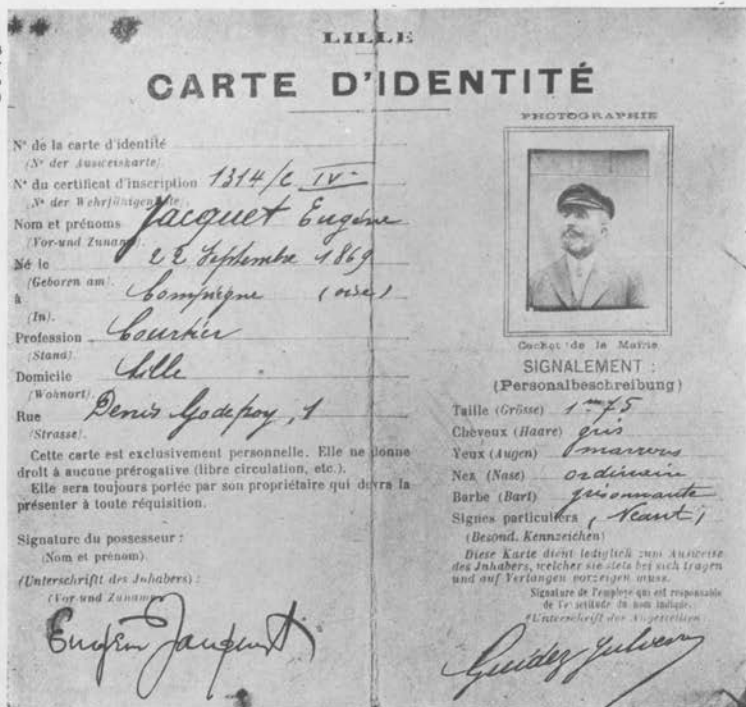 LILLE
CARTE D'IDENTITÉ
N° de la carte d'identité
(N° der Ausweiskarte).
N° du certificat d'inscription 1314/C IV
(N° der Wehrfähigenliste).
Nom et prénoms Jacquet Eugène
(Vor-und Zuname).
Né le 22 Septembre 1869
(Geboren am).
à Compiègne (oise)
(In).
Profession Courtier
(Stand).
Domicile Lille
(Wohnort).
Rue Denis Godefroy, 1
(Strasse).
Cette carte est exclusivement personnelle. Elle ne donne
droit à aucune prérogative (libre circulation, etc.).
Elle sera toujours portée par son propriétaire qui devra la
présenter à toute réquisition.
Signature du possesseur :
(Nom et prénom).
(Unterschrift des Inhabers) :
(Vor und Zuname)
Eugène Jacquet
PHOTOGRAPHIE
Cachet de la Mairie
SIGNALEMENT :
(Personalbeschreibung)
Taille (Grösse) 1m75
Cheveux (Haare) gris
Yeux (Augen) marrons
Nez (Nase) ordinaire
Barbe (Bart) grisonnante
Signes particuliers (Néant)
(Besond. Kennzeichen)
Diese Karte dient lediglich zum Ausweise
des Inhabers, welcher sie stets bei sich tragen
und auf Verlangen vorzeigen muss.
Signature de l'employé qui est responsable
de l'exactitude du nom indiqué.
(Unterschrift des Angestellten)
Guidez